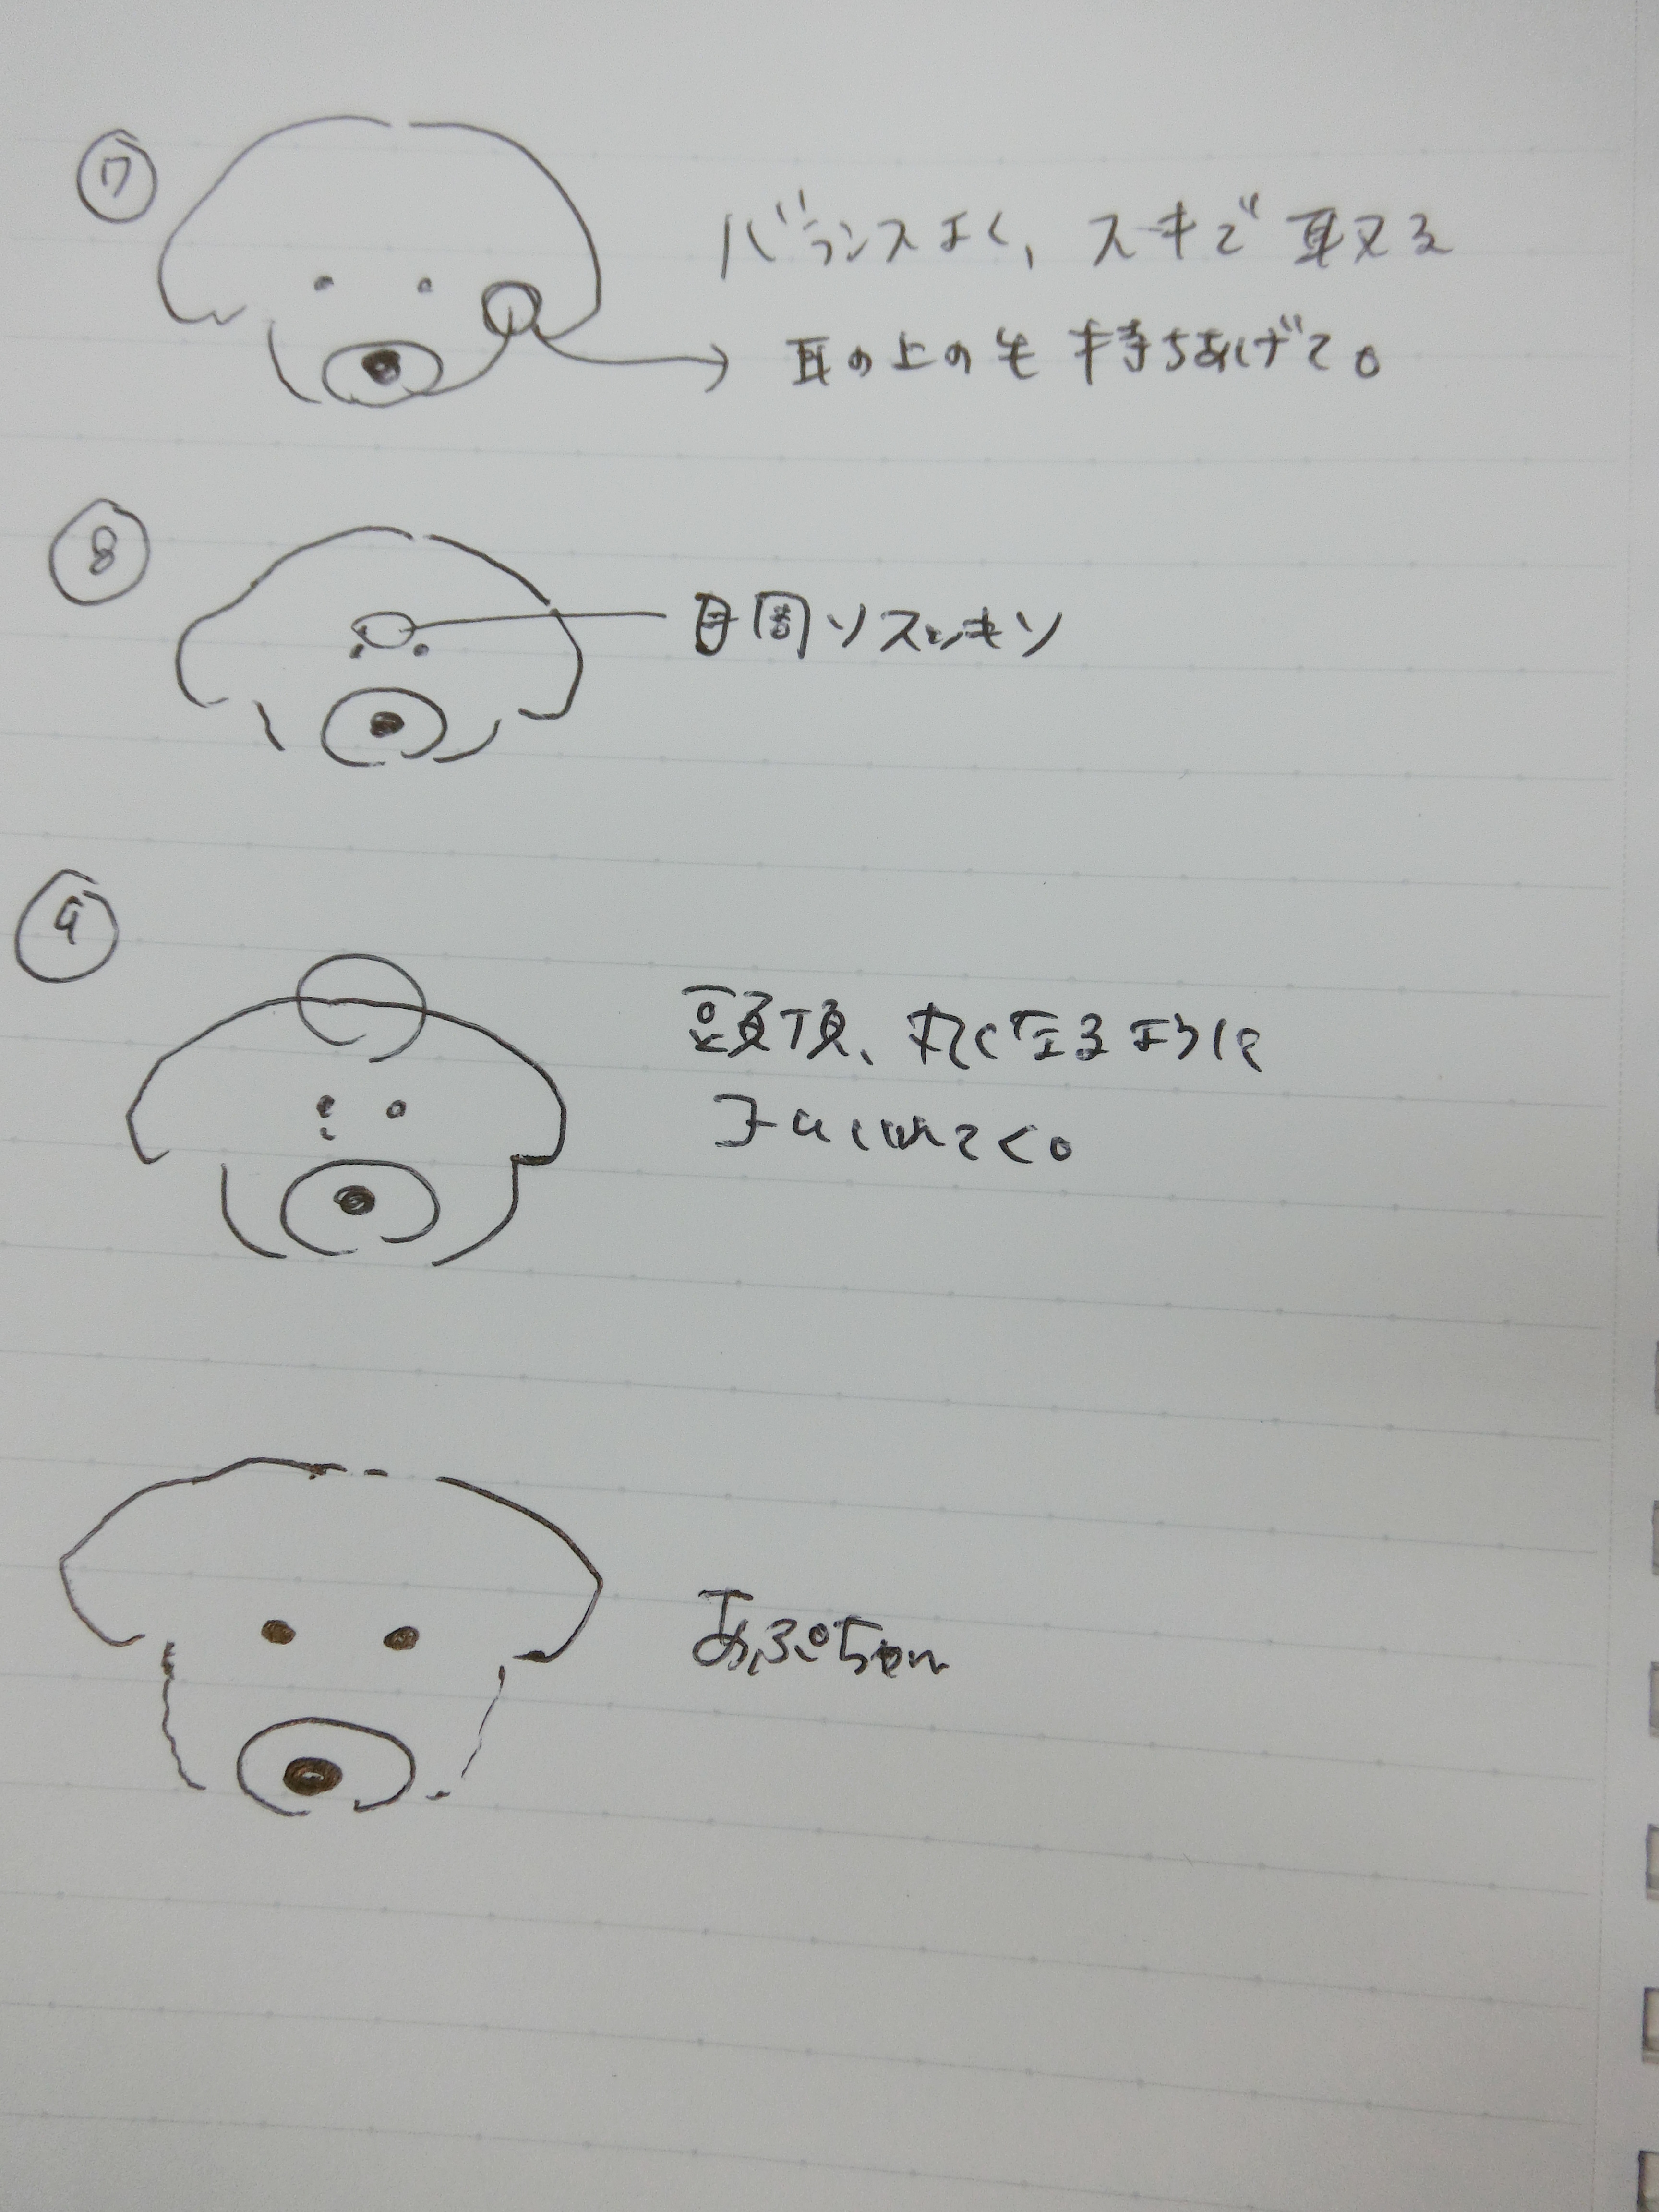 ⑦
バランスよく、スキで耳取る
耳の上の毛持ちあげて。
⑧
目周りスッキリ
⑨
頭頂、丸くなるように
あぷちゃん